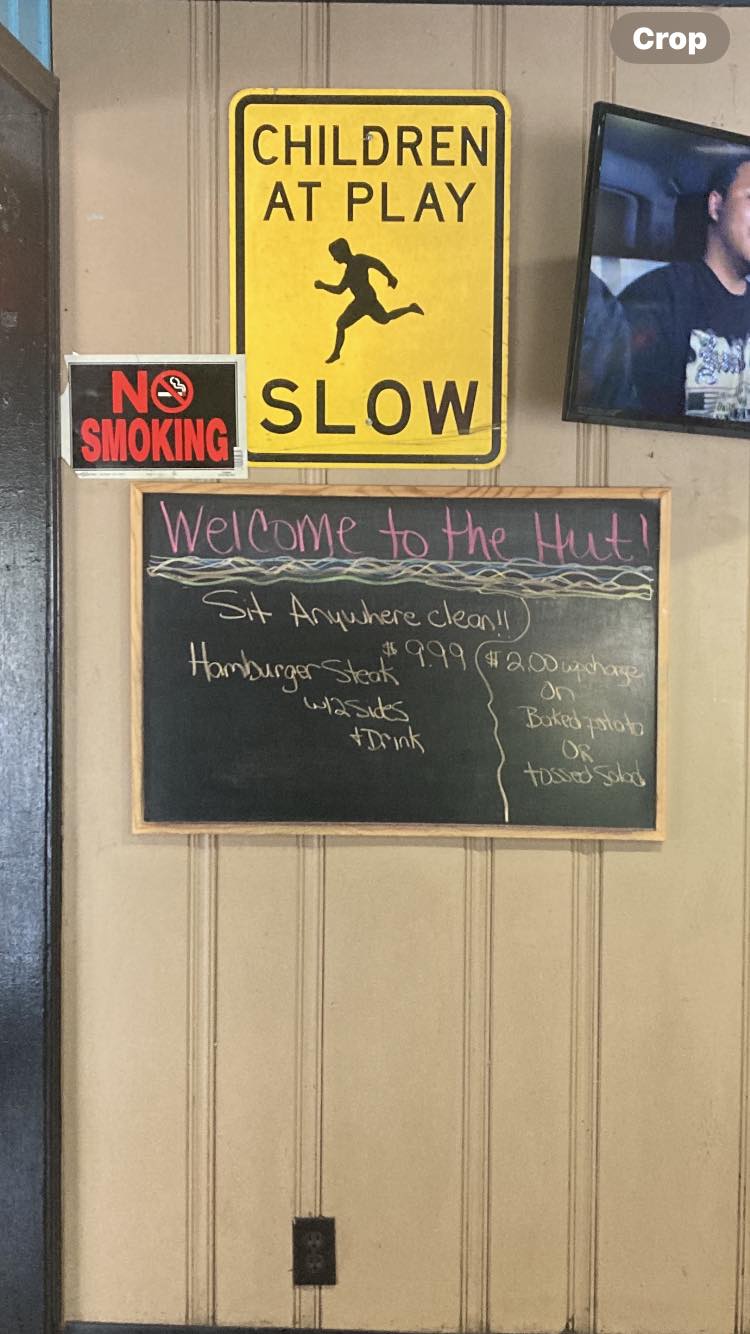 Crop
CHILDREN
AT PLAY
SLOW
NO
SMOKING
Welcome to the Hut!
Sit Anywhere clean!!
Hamburger Steak $9.99
w/2 Sides
+ Drink
$2.00 upcharge
On
Baked potato
OR
tossed Salad